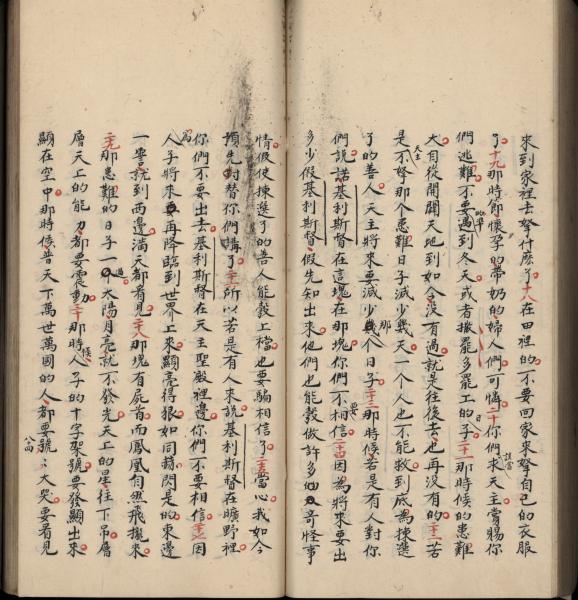 來到家裡去拏什麽了十八在田裡的不要回家來拏自己的衣服
了十九那時節懷孕的帶奶的婦人們可憐二十你們求天主賞賜你
們逃難不要遇到冬天或者撒罷多罷工的日子二十一那時候的患難
大自從開闢天地到如今沒有過就是往後去也再沒有的二十二若
是天主不拏那个患難日子減少幾天一个人也不能救到底為揀選
了的善人天主將來要減少那幾个日子二十三那時候若是有人對你
們說諾基利斯督在這塊在那塊你們不要相信二十四因為將來要出
多少假基利斯督假先知出來他們也能彀做許多的奇怪事
情假使揀選了的善人能彀上檔也要騙相信了二十五當心我如今
預先對替你們講了二十六所以若是有人來說基利斯督在曠野裡
你們不要出去基利斯督在天主聖殿裡邊你們不要相信二十七因為
人子將來再降臨到世界上來顯亮得狠如同霍閃是的東邊
一亮就到西邊滿天都看見二十八那塊有屍首而鳳凰自然飛攏來
二九那患難的日子一過太陽月亮就不發光天上的星往下吊層
層天上的能力都要震動三十那時候人子的十字架號要發顯出來
顯在空中那時候普天下萬世萬國的人都要號啕大哭要看見